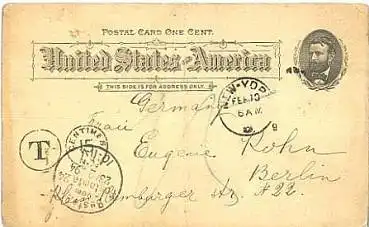 POSTAL CARD ONE CENT.
United States of America
THIS SIDE IS FOR ADDRESS ONLY.
NEW-YORK
FEB 10
6 AM
9
Germany
Frau
Eugenie Kohn
Berlin
str. 22.
T
CENTIMES